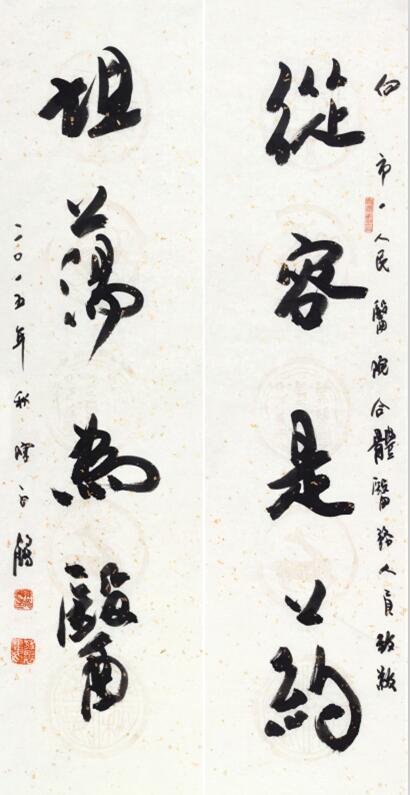 向市一人民醫院全體醫務人員致敬
從容是葯
坦蕩為醫
二〇一五年秋